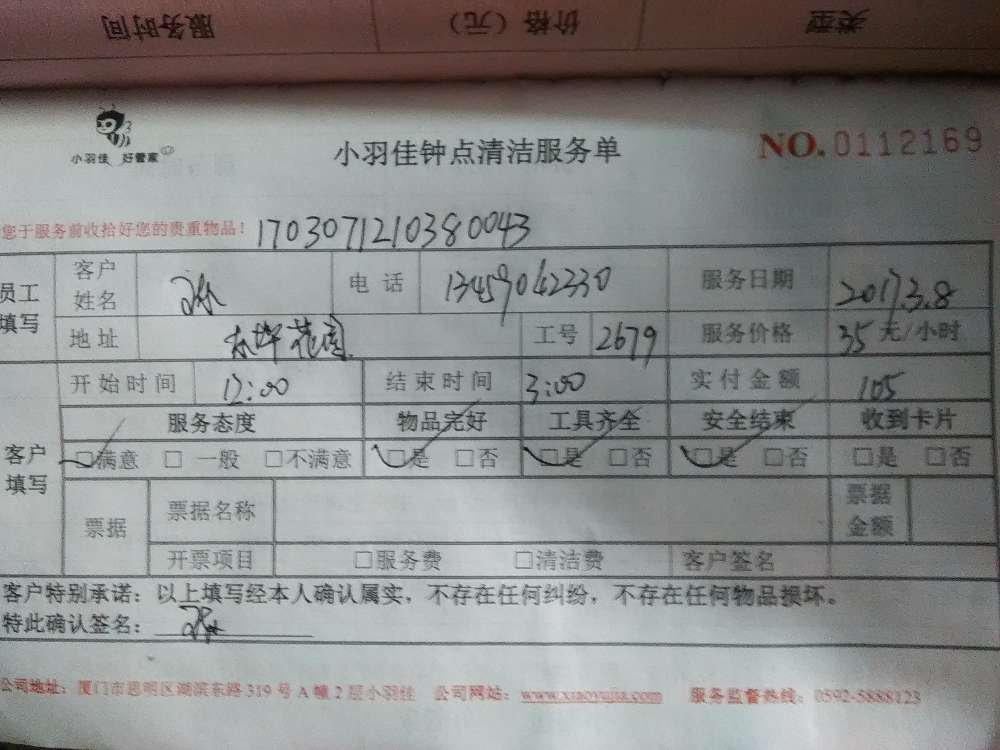 服务时间 价格（元） 类型
小羽佳 好管家
小羽佳钟点清洁服务单
NO.0112169
您于服务前收拾好您的贵重物品！ 1703071210380043
员工填写
客户姓名 电话 13459042330 服务日期 2017.3.8
地址 花园 工号 2679 服务价格 35 元/小时
客户填写
开始时间 12:00 结束时间 3:00 实付金额 105
服务态度 物品完好 工具齐全 安全结束 收到卡片
☑满意 □ 一般 □不满意 ☑是 □否 ☑是 □否 ☑是 □否 □是 □否
票据 票据名称 票据金额
开票项目 □服务费 □清洁费 客户签名
客户特别承诺：以上填写经本人确认属实，不存在任何纠纷，不存在任何物品损坏。
特此确认签名：
公司地址：厦门市思明区湖滨东路 319 号 A 幢 2 层小羽佳 公司网站：www.xiaoyujia.com 服务监督热线：0592-5888123